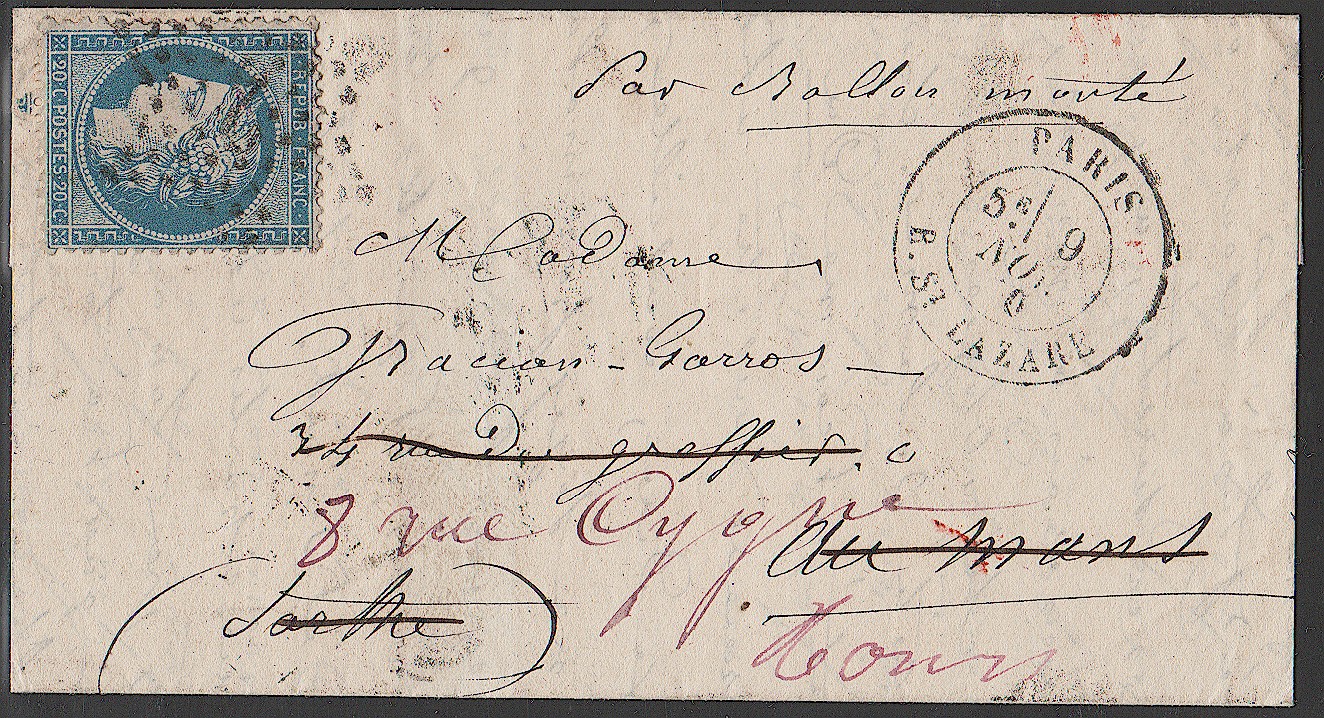 REPUB. FRANC.
20.C.POSTES.20.C.
Par Ballon monté
PARIS
5E/
9
NOV.
R. ST LAZARE
Madame
Gracien-Garros
34 rue du greffier.
8 rue Cygne
au Mans
Sarthe
Tours